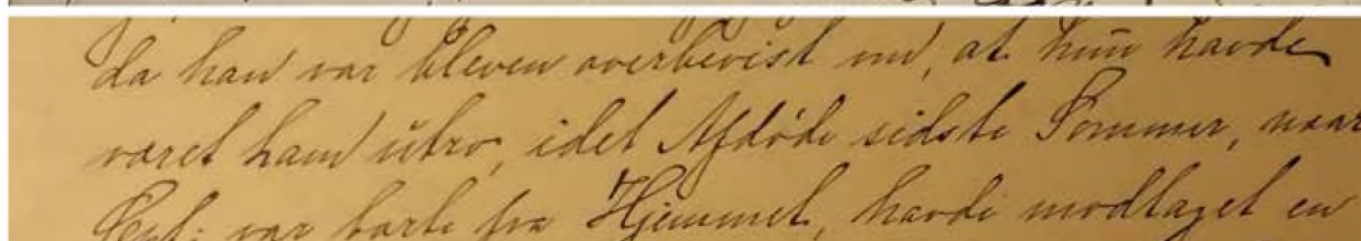 da han var bleven overbevist om, at hun havde
været ham utro, idet Afdøde sidste Sommer, naar
var borte fra Hjemmet, havde modtaget en